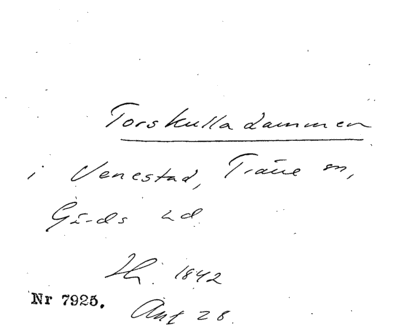 Torskulladammen
i Venestad, Träne sn,
Gärds hd
1842
Nr 7925.
28.